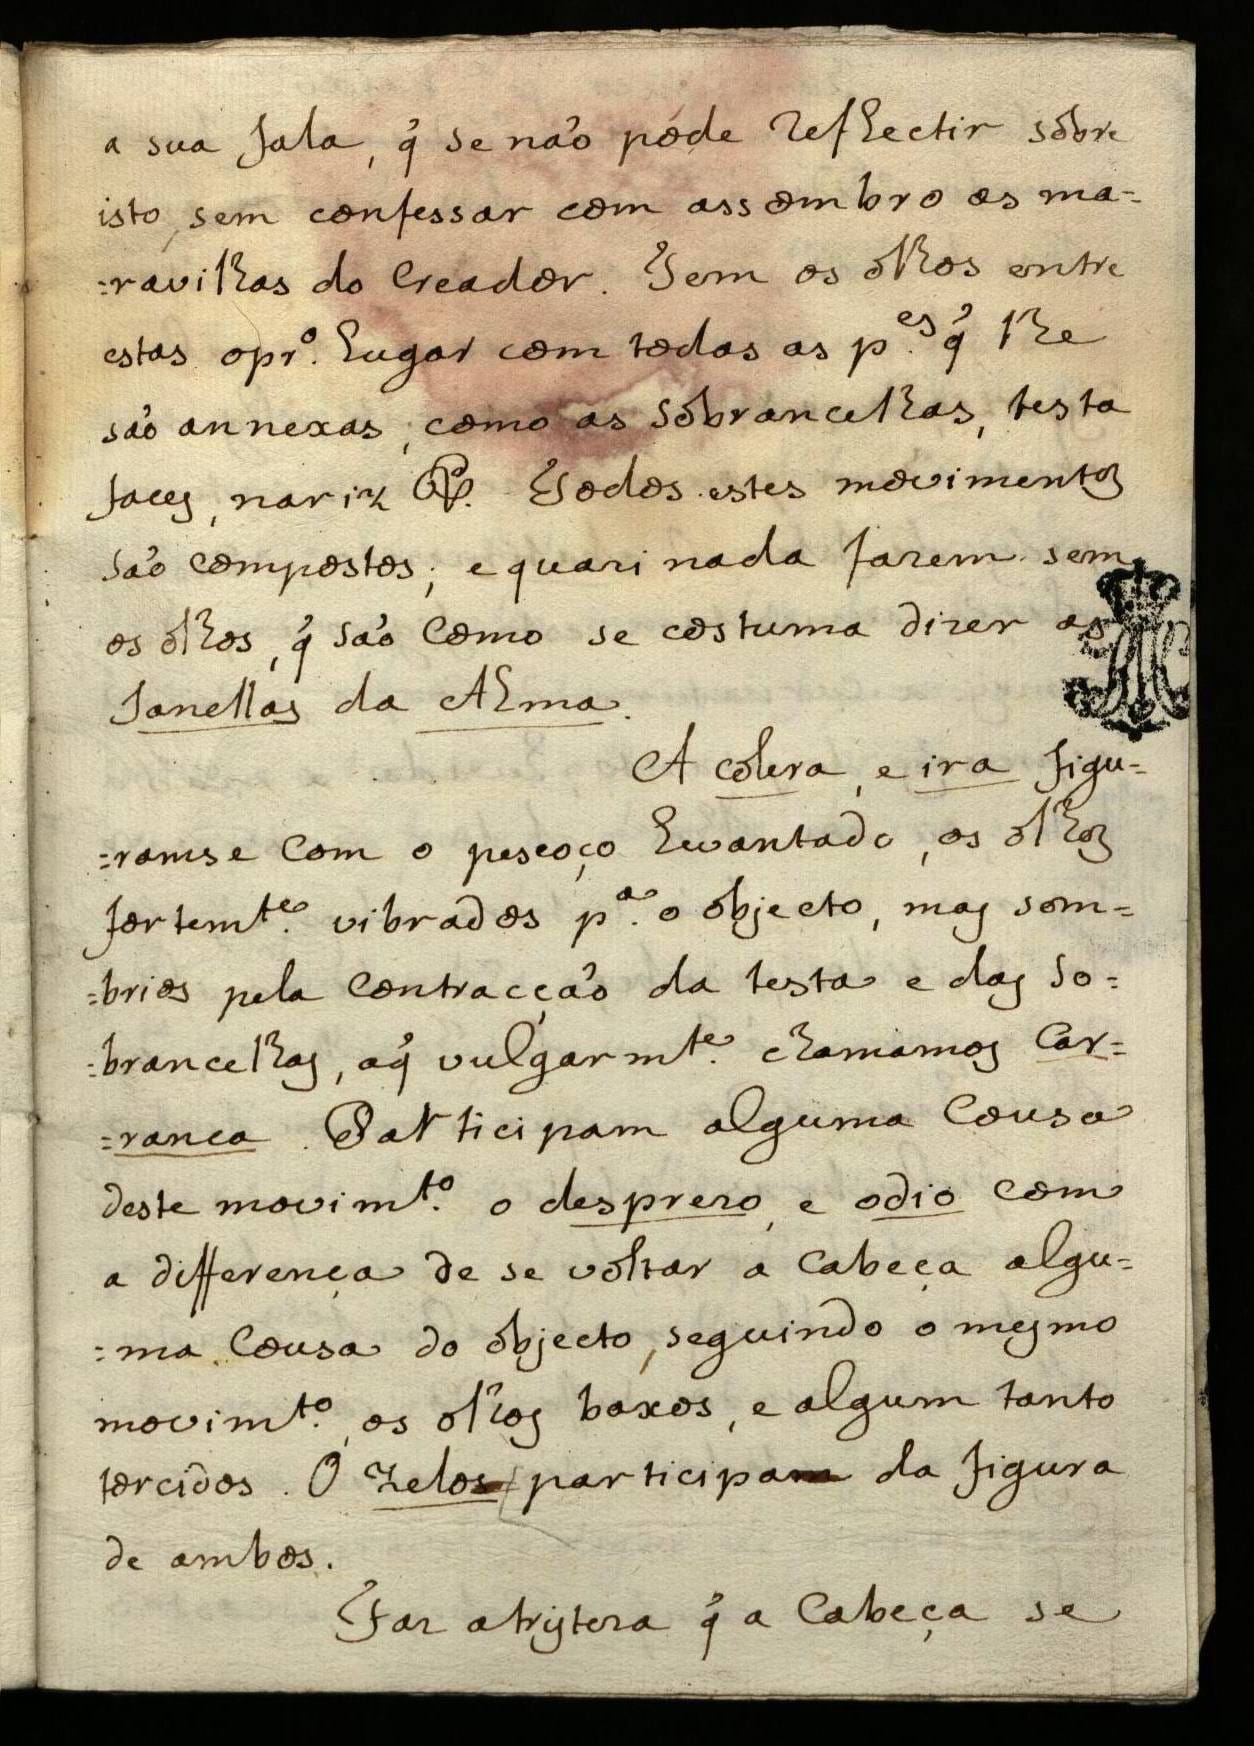 a sua fala, q̃ se não póde reflectir sôbre
isto, sem confessar com assombro as ma=
=ravilhas do Creador. Tem os olhos entre
estas o pr.º lugar com todas as p.es q̃ lhe
são annexas, como as sôbrancelhas, testa
faces, nariz &. Todos estes movimentos
são compostos; e quazi nada fazem sem
os olhos, q̃ são como se costuma dizer as
Janellas da Alma.
A cólera, e ira figu=
=ramse com o pescoço levantado, os olhos
fortemte. vibrados pa. o objecto, mas som=
=brios pela contracção da testa e das so=
=brancelhas, aq̃ vulgarmte. chamamos Car=
=ranca. Participam alguma Cousa
deste movimto. o desprezo, e odio com
a differença de se voltar a cabeça algu=
=ma Cousa do objecto, seguindo o mesmo
movimto., os olhos baxos, e algum tanto
torcidos. O zelos participam da figura
de ambos.
Faz a tristeza q̃ a Cabeça se